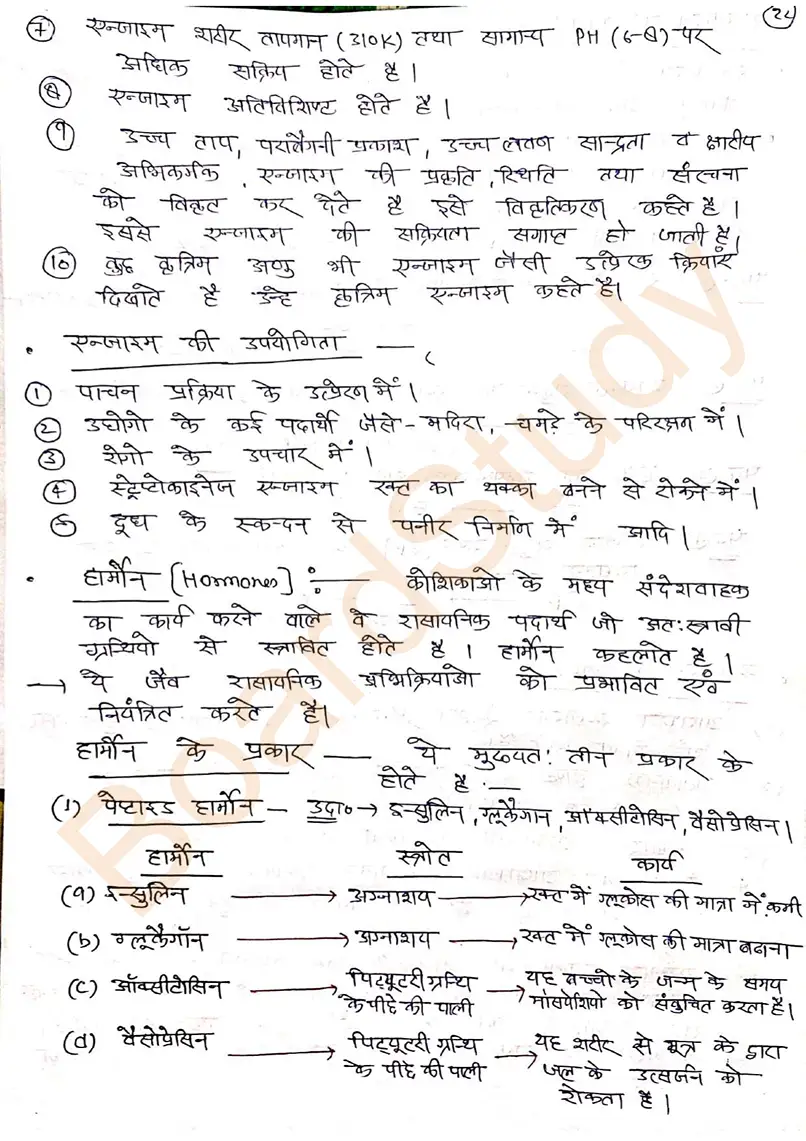 24
(7) एन्जाइम शरीर तापमान (310K) तथा सामान्य PH (6-8) पर
अधिक सक्रिय होते है।
(8) एन्जाइम अतिविशिष्ट होते है।
(9) उच्च ताप, पराबैगनी प्रकाश, उच्च लवण सान्द्रता व क्षारीय
अभिकर्मक, एन्जाइम की प्रकृति, स्थिति तथा संरचना
को विकृत कर देते है इसे विकृतिकरण कहते है।
इससे एन्जाइम की सक्रियता समाप्त हो जाती है।
(10) कुछ कृत्रिम अणु भी एन्जाइम जैसी उत्प्रेरक क्रियाएं
दिखाते है उन्हे कृत्रिम एन्जाइम कहते है।
• एन्जाइम की उपयोगिता —
(1) पाचन प्रक्रिया के उत्प्रेरण में।
(2) उद्योगो के कई पदार्थो जैसे- मदिरा, चमड़े के परिरक्षण में।
(3) रोगो के उपचार में।
(4) स्ट्रेप्टोकाइनेज एन्जाइम रक्त का थक्का बनने से रोकने में।
(5) दूध के स्कन्दन से पनीर निर्माण में आदि।
• हार्मोन [Hormones] :— कोशिकाओ के मध्य संदेशवाहक
का कार्य करने वाले वे रासायनिक पदार्थ जो अतः स्त्रावी
ग्रन्थियो से स्त्रावित होते है। हार्मोन कहलाते है।
→ ये जैव रासायनिक अभिक्रियाओ को प्रभावित एवं
नियंत्रित करते है।
हार्मोन के प्रकार — ये मुख्यतः तीन प्रकार के
होते है —
(1) पेप्टाइड हार्मोन - उदा० → इन्सुलिन, ग्लूकैगान, ऑक्सीटोसिन, वैसोप्रेसिन।
हार्मोन स्त्रोत कार्य
(a) इन्सुलिन → अग्नाशय → रक्त में ग्लूकोस की मात्रा में कमी
(b) ग्लूकैगॉन → अग्नाशय → रक्त में ग्लूकोस की मात्रा बढाना
(c) ऑक्सीटोसिन → पिट्यूटरी ग्रन्थि → यह बच्चो के जन्म के समय
के पीछे की पाली मांसपेशियो को संकुचित करता है।
(d) वैसोप्रेसिन → पिट्यूटरी ग्रन्थि → यह शरीर से मूत्र के द्वारा
के पीछे की पाली जल के उत्सर्जन को
रोकता है।
BoardStudy